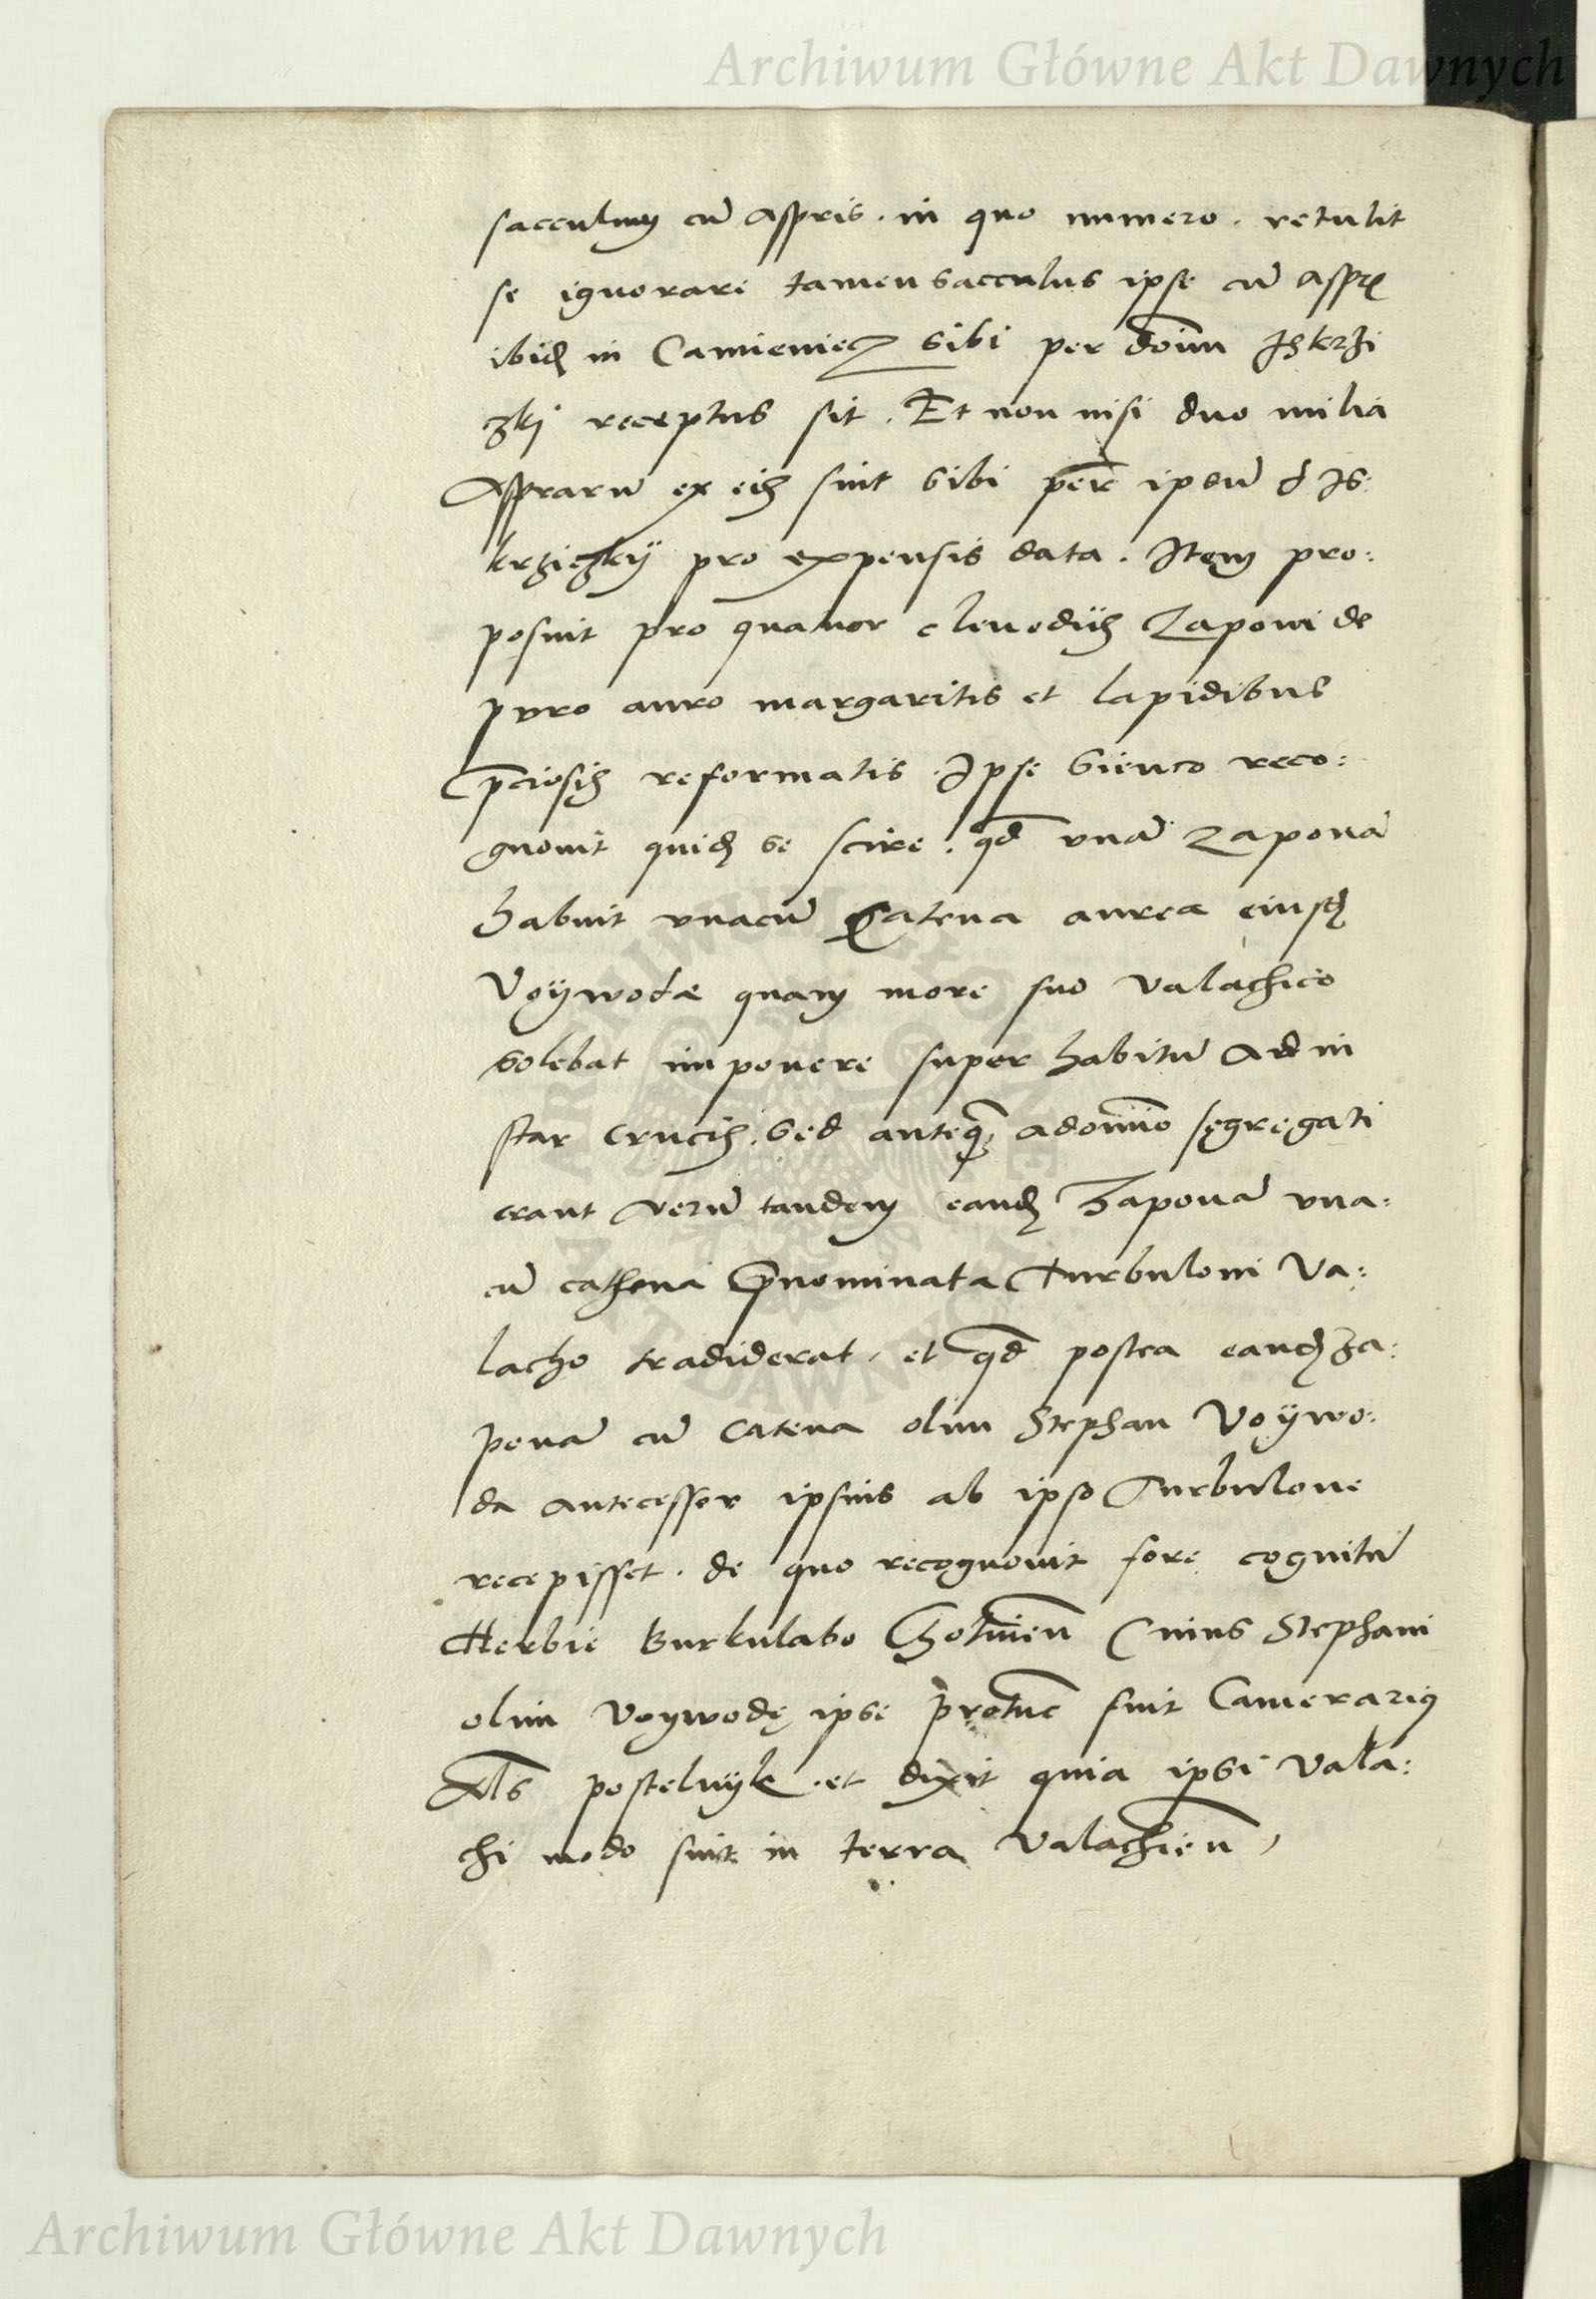 Archiwum Główne Akt Dawnych
sacculum cũ Aspris . in quo numero . retulit
se ignorare tamen sacculus ipse cũ Aspr
ibid in Camieniecz sibi per doīm Iskrzi
czkj receptus sit . Et non nisi duo milia
Asprarũ ex eis sint sibi per ipsũ d Is:
krziczkÿ pro expensis data . Item pro:
posuit pro quatuor clenodijs Zaponi de
puro auro margaritis et lapidibus
p̄ciosis reformatis . Ipse Sienco reco:
gnouit quid se scire . qđ vnã Zaponã
habuit vnacũ Catena aurea eiusd
Voÿwodæ quam more suo Valachico
solebat imponere super habitũ Ad in
star Crucis . Sed anteq̃ adomīo segregati
erant verũ tandem eand Zaponã vna:
cũ cathena p̄nominata Turbuloni Va:
lacho tradiderat , et qđ postea eand Za:
ponã cũ Catena olim Stephan Voÿwo:
da antecessor ipsius ab ipso Turbulone
recepisset . de quo recognouit fore cognitũ
Herbie Burkulabo Chotimień Cuius Stephani
olim Voywodę ipse protūc fuit Camerarius
Als postelnÿk . et dixit quia ipsi Vala:
chi modo sint in terra Valachień ,
Archiwum Główne Akt Dawnych